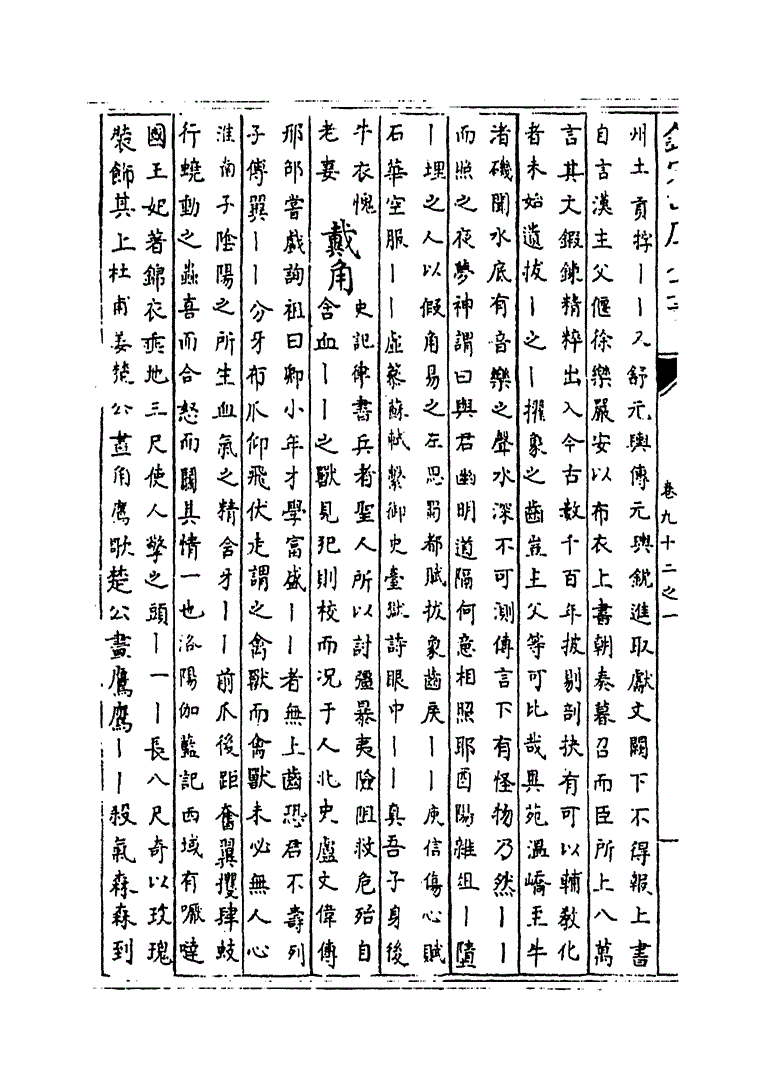 卷九十二之一
州土貢捽｜｜又舒元輿傳元輿銳進取獻文闕下不得報上書
自言漢主父偃徐樂嚴安以布衣上書朝奏暮召而臣所上八萬
言其文鍜鍊精粹出入今古數千百年披剔剖抉有可以輔敎化
者未始遺拔｜之｜擢象之齒豈主父等可比哉異苑溫嶠至牛
渚磯聞水底有音樂之聲水深不可測傳言下有怪物乃然｜｜
而照之夜夢神謂曰與君幽明道隔何意相照耶酉陽雜俎｜墮
｜埋之人以假角易之左思蜀都賦拔象齒戾｜｜庾信傷心賦
石華空服｜｜虛蘇軾繫御史臺獄詩眼中｜｜真吾子身後
牛衣愧
老妻
戴角
史記律書兵者聖人所以討彊暴夷險阻救危殆自
含血｜｜之獸見犯則校而況于人北史盧文偉傳
邢邵嘗戲詢祖曰卿小年才學富盛｜｜者無上齒恐君不壽列
子傅翼｜｜分牙布爪仰飛伏走謂之禽獸而禽獸未必無人心
淮南子陰陽之所生血氣之精含牙｜｜前爪後距奮翼攫肆蚑
行蟯動之蟲喜而合怒而鬬其情一也洛陽伽藍記西域有嚈噠
國王妃著錦衣垂地三尺使人擎之頭｜一｜長八尺奇以玫瑰
裝飾其上杜甫姜楚公畫角鷹歌楚公畫鷹鷹｜｜殺氣森森到